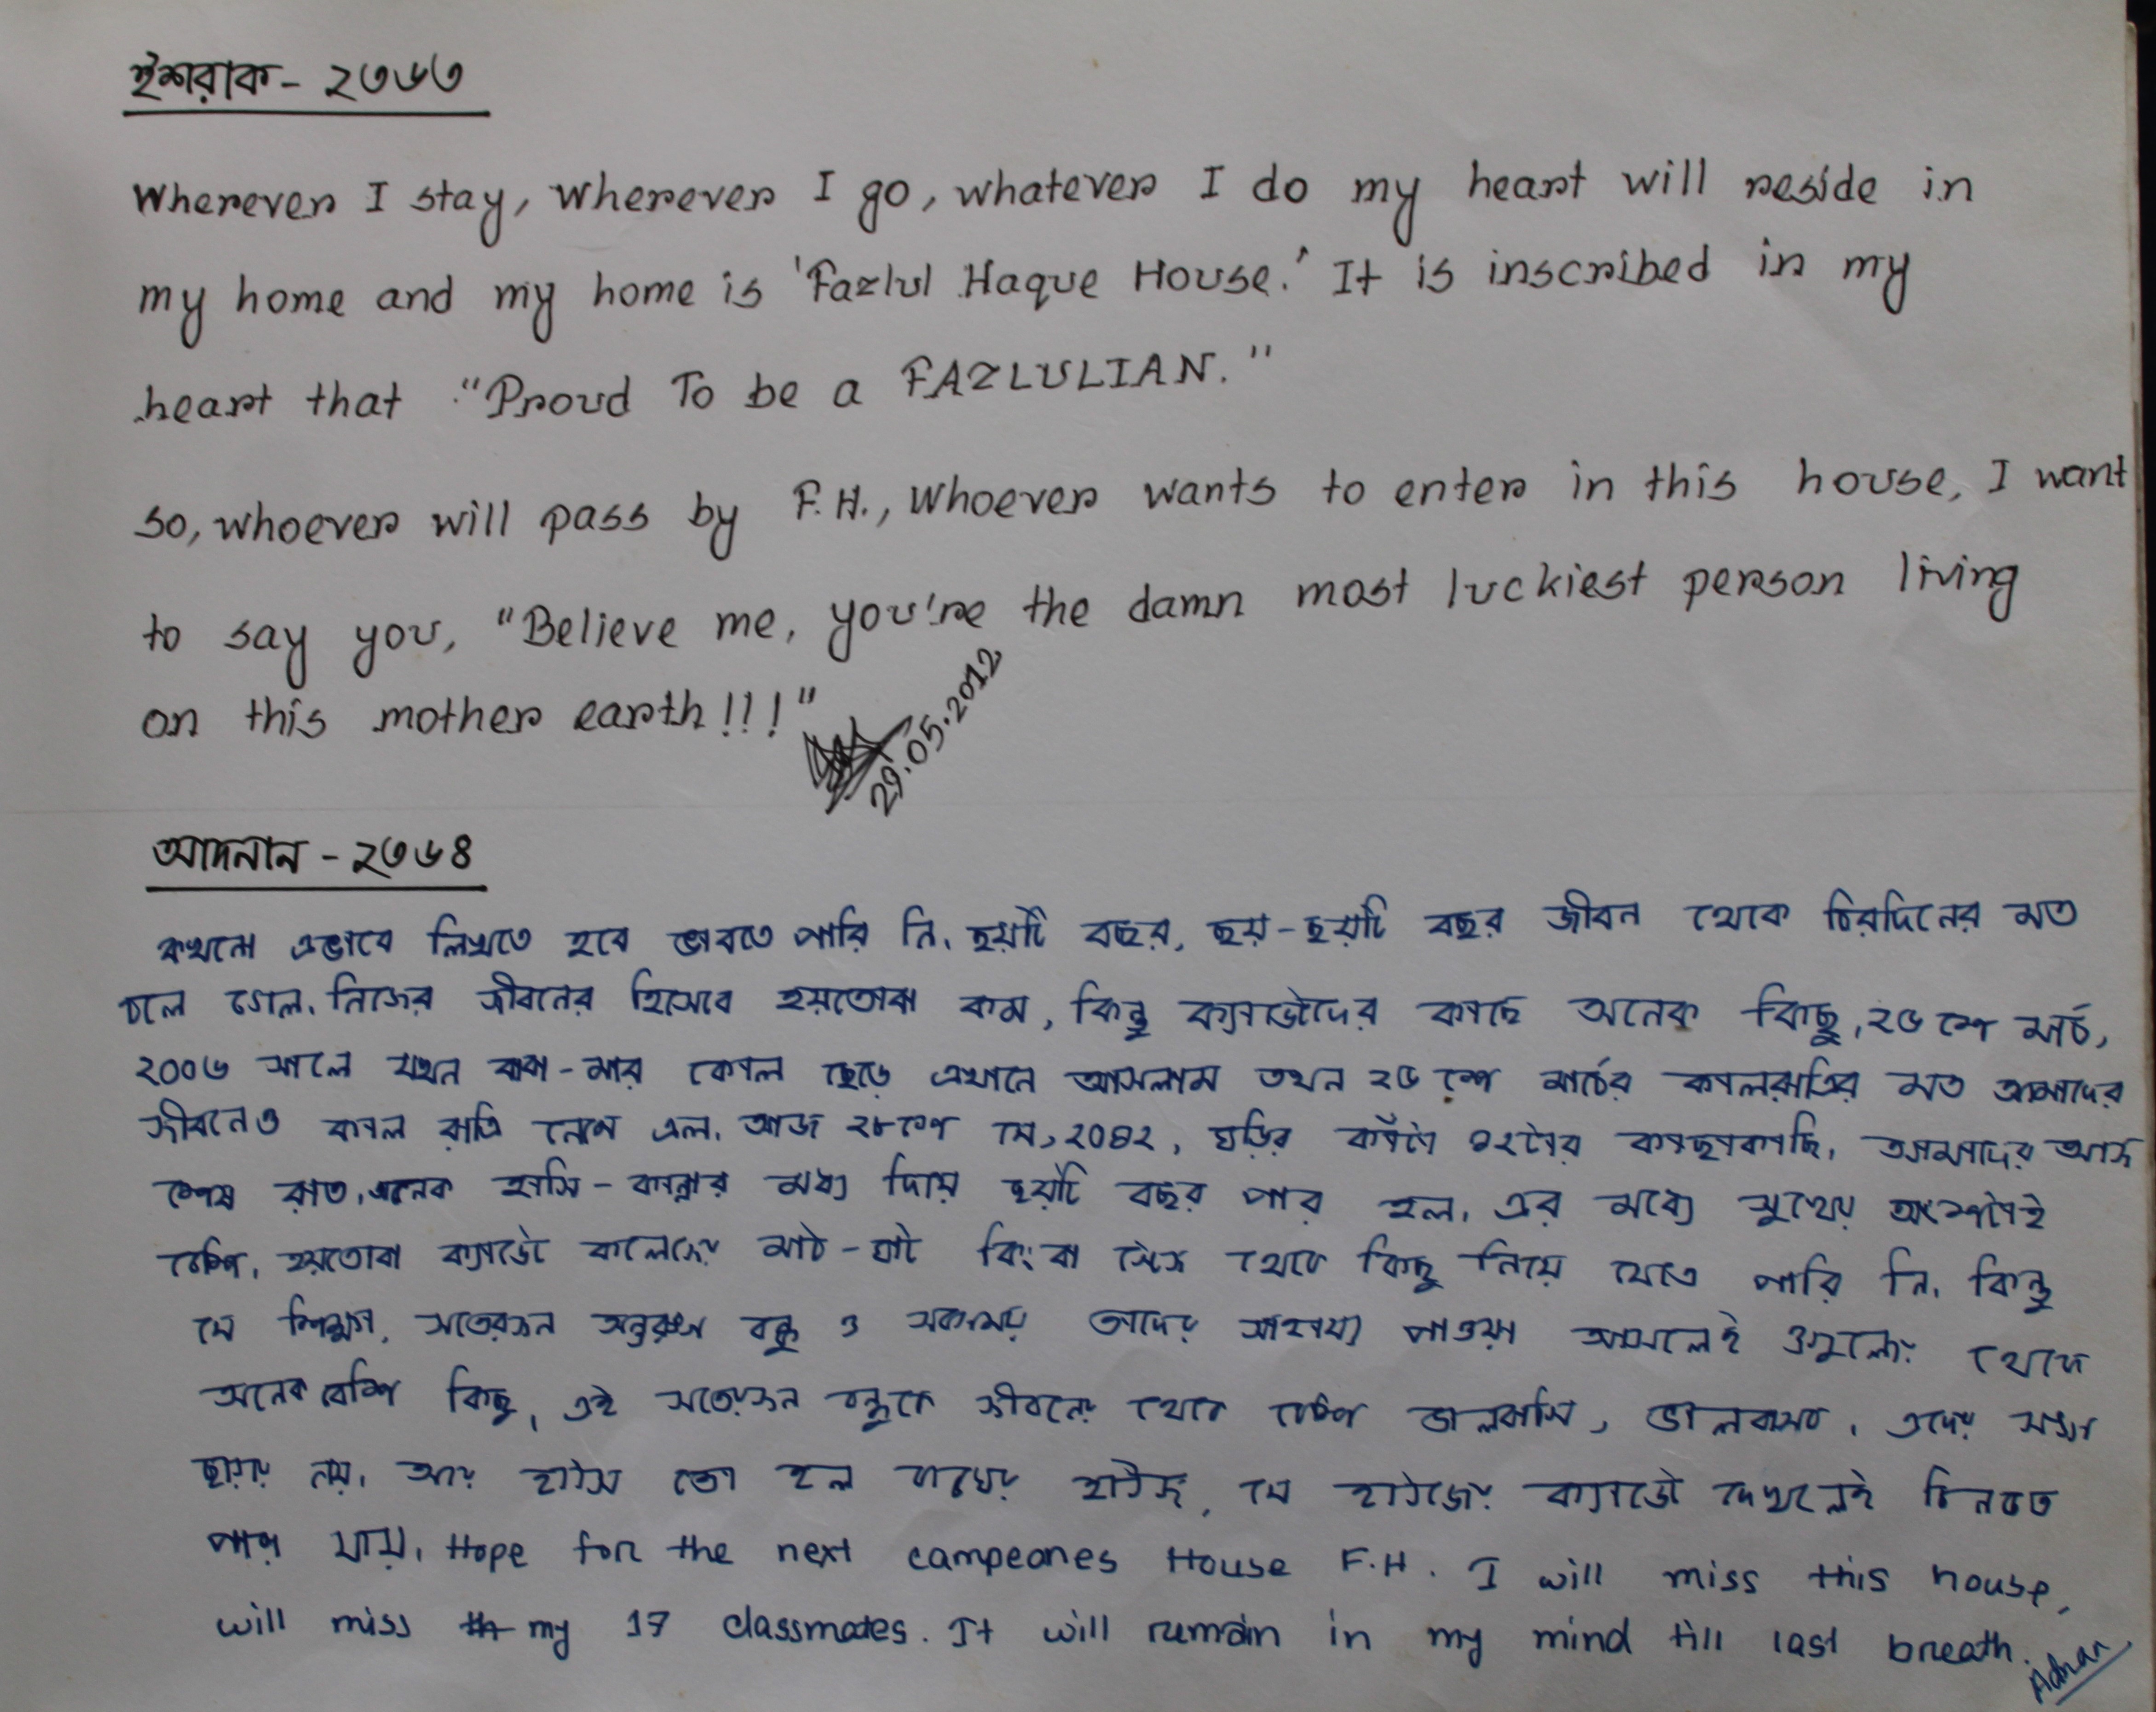 ইশরাক - ২৩৬৩
Wherever I stay, wherever I go, whatever I do my heart will reside in
my home and my home is 'Fazlul Haque House.' It is inscribed in my
heart that "Proud To be a FAZLULIAN."
So, whoever will pass by F.H., whoever wants to enter in this house, I want
to say you, "Believe me, you're the damn most luckiest person living
on this mother earth!!!"
29.05.2012
আদনান - ২৩৬৪
কখনো এভাবে লিখতে হবে ভাবতে পারি নি. ছয়টি বছর, ছয়-ছয়টি বছর জীবন থেকে চিরদিনের মত
চলে গেল. নিজের জীবনের হিসেবে হয়তোবা কম, কিন্তু ক্যাডেটদের কাছে অনেক কিছু. ২৬ শে মার্চ,
২০০৬ সালে যখন বাবা-মার কোল ছেড়ে এখানে আসলাম তখন ২৫ শে মার্চের কালরাত্রির মত আমাদের
জীবনেও কাল রাত্রি নেমে এল. আজ ২৮শে মে, ২০১২, ঘড়ির কাঁটা ১২টার কাছাকাছি. আমাদের আজ
শেষ রাত. অনেক হাসি-কান্নার মধ্য দিয়ে ছয়টি বছর পার হল. এর মধ্যে সুখের অংশটাই
বেশি. হয়তোবা ক্যাডেট কলেজের মাঠ-ঘাট কিংবা থেকে কিছু নিয়ে যেতে পারি নি. কিন্তু
যে শিক্ষা, সতেরজন বন্ধু ও সবসময় তাদের সাহায্য পাওয়া আসলেই ওগুলোর থেকে
অনেক বেশি কিছু. এই সতেরজন বন্ধুকে জীবনের থেকে বেশি ভালবাসি, ভালবাসব. এদের সঙ্গ
ছাড়ার নয়. আর হাউস তো হল বাঘের হাউজ, যে হাউজের ক্যাডেট দেখলেই চিনতে
পারা যায়. Hope for the next campeones House F.H. I will miss this house,
will miss my 17 classmates. It will remain in my mind till last breath.
Adnan